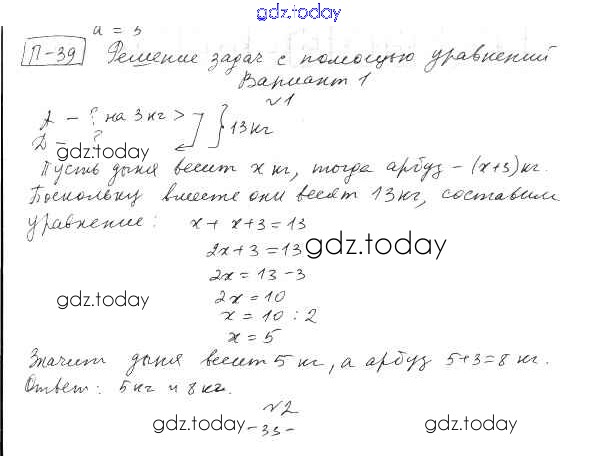 gdz.today
a = 3
П-39 Решение задач с помощью уравнений
Вариант 1
№1
А – ? на 3 кг > } 13 кг
Д – ?
gdz.today
Пусть дыня весит x кг, тогда арбуз – (x+3) кг.
Поскольку вместе они весят 13 кг, составим
уравнение: x + x+3 = 13
2x+3 = 13
gdz.today
2x = 13 - 3
gdz.today
2x = 10
x = 10 : 2
x = 5
Значит дыня весит 5 кг, а арбуз 5+3=8 кг.
Ответ: 5 кг и 8 кг.
№2
gdz.today
gdz.today
- 33 -